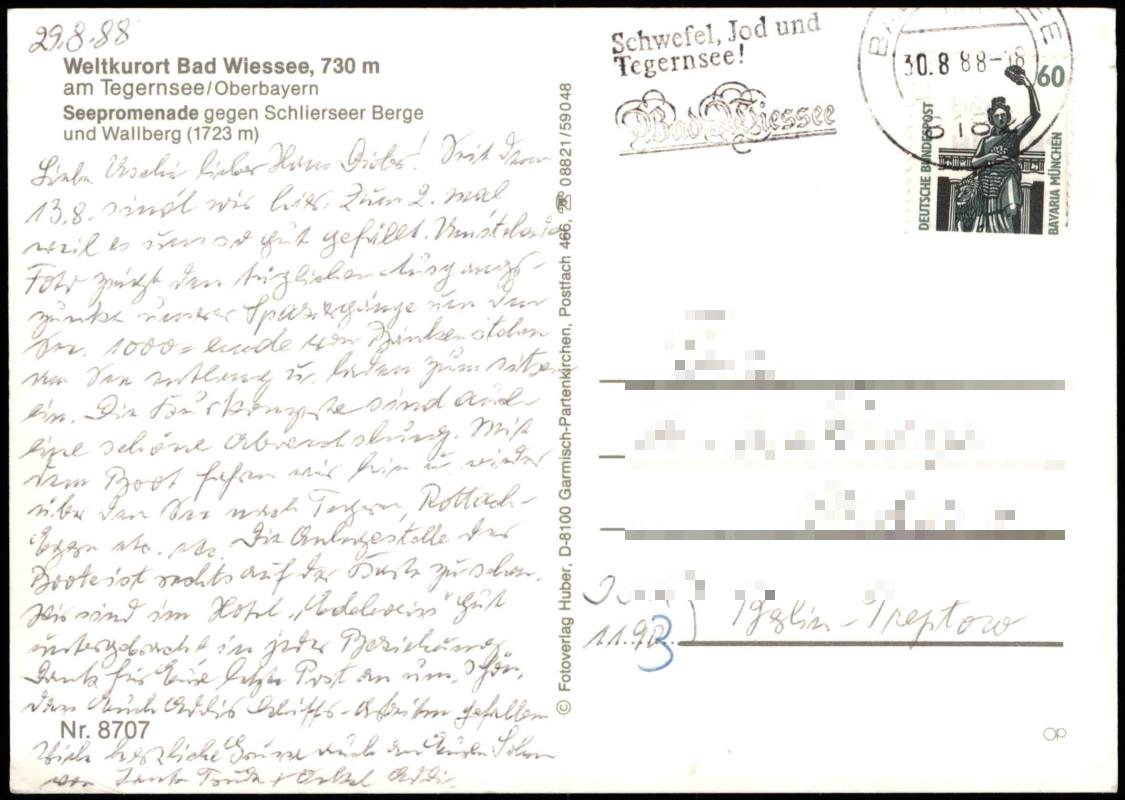 29.8.88
Weltkurort Bad Wiessee, 730 m
am Tegernsee/Oberbayern
Seepromenade gegen Schlierseer Berge
und Wallberg (1723 m)
lieber Hans Seit dem
13.8. sind wir hier. Zum 2. mal
weil es uns so gut gefällt.
Foto zeigt den täglichen Ausgangs-
punkt unserer Spaziergänge um den
See. 1000-ende von Bänken stehen
am See entlang u. laden zum sitzen
ein. Die Kurkonzerte sind auch
eine schöne Abwechslung. Mit
dem Boot fahren wir hin u. wieder
über den See nach Rottach-
Egern etc. etc. Die Anlegestelle der
Boote ist rechts auf der Karte zu sehen.
Wir sind im Hotel „Edelweiss" gut
untergebracht in jeder Beziehung.
Dank für Eure letzte Post an uns. Schön,
dass Euch gefallen
Nr. 8707
Viele herzliche Grüsse auch an Euren Sohn
von Tante Trude + Onkel
© Fotoverlag Huber, D-8100 Garmisch-Partenkirchen, Postfach 466, ☎ 08821/59048
Schwefel, Jod und
Tegernsee!
Bad Wiessee
30.8 88-18
60
DEUTSCHE BUNDESPOST
BAVARIA MÜNCHEN
Berlin-Treptow
OP